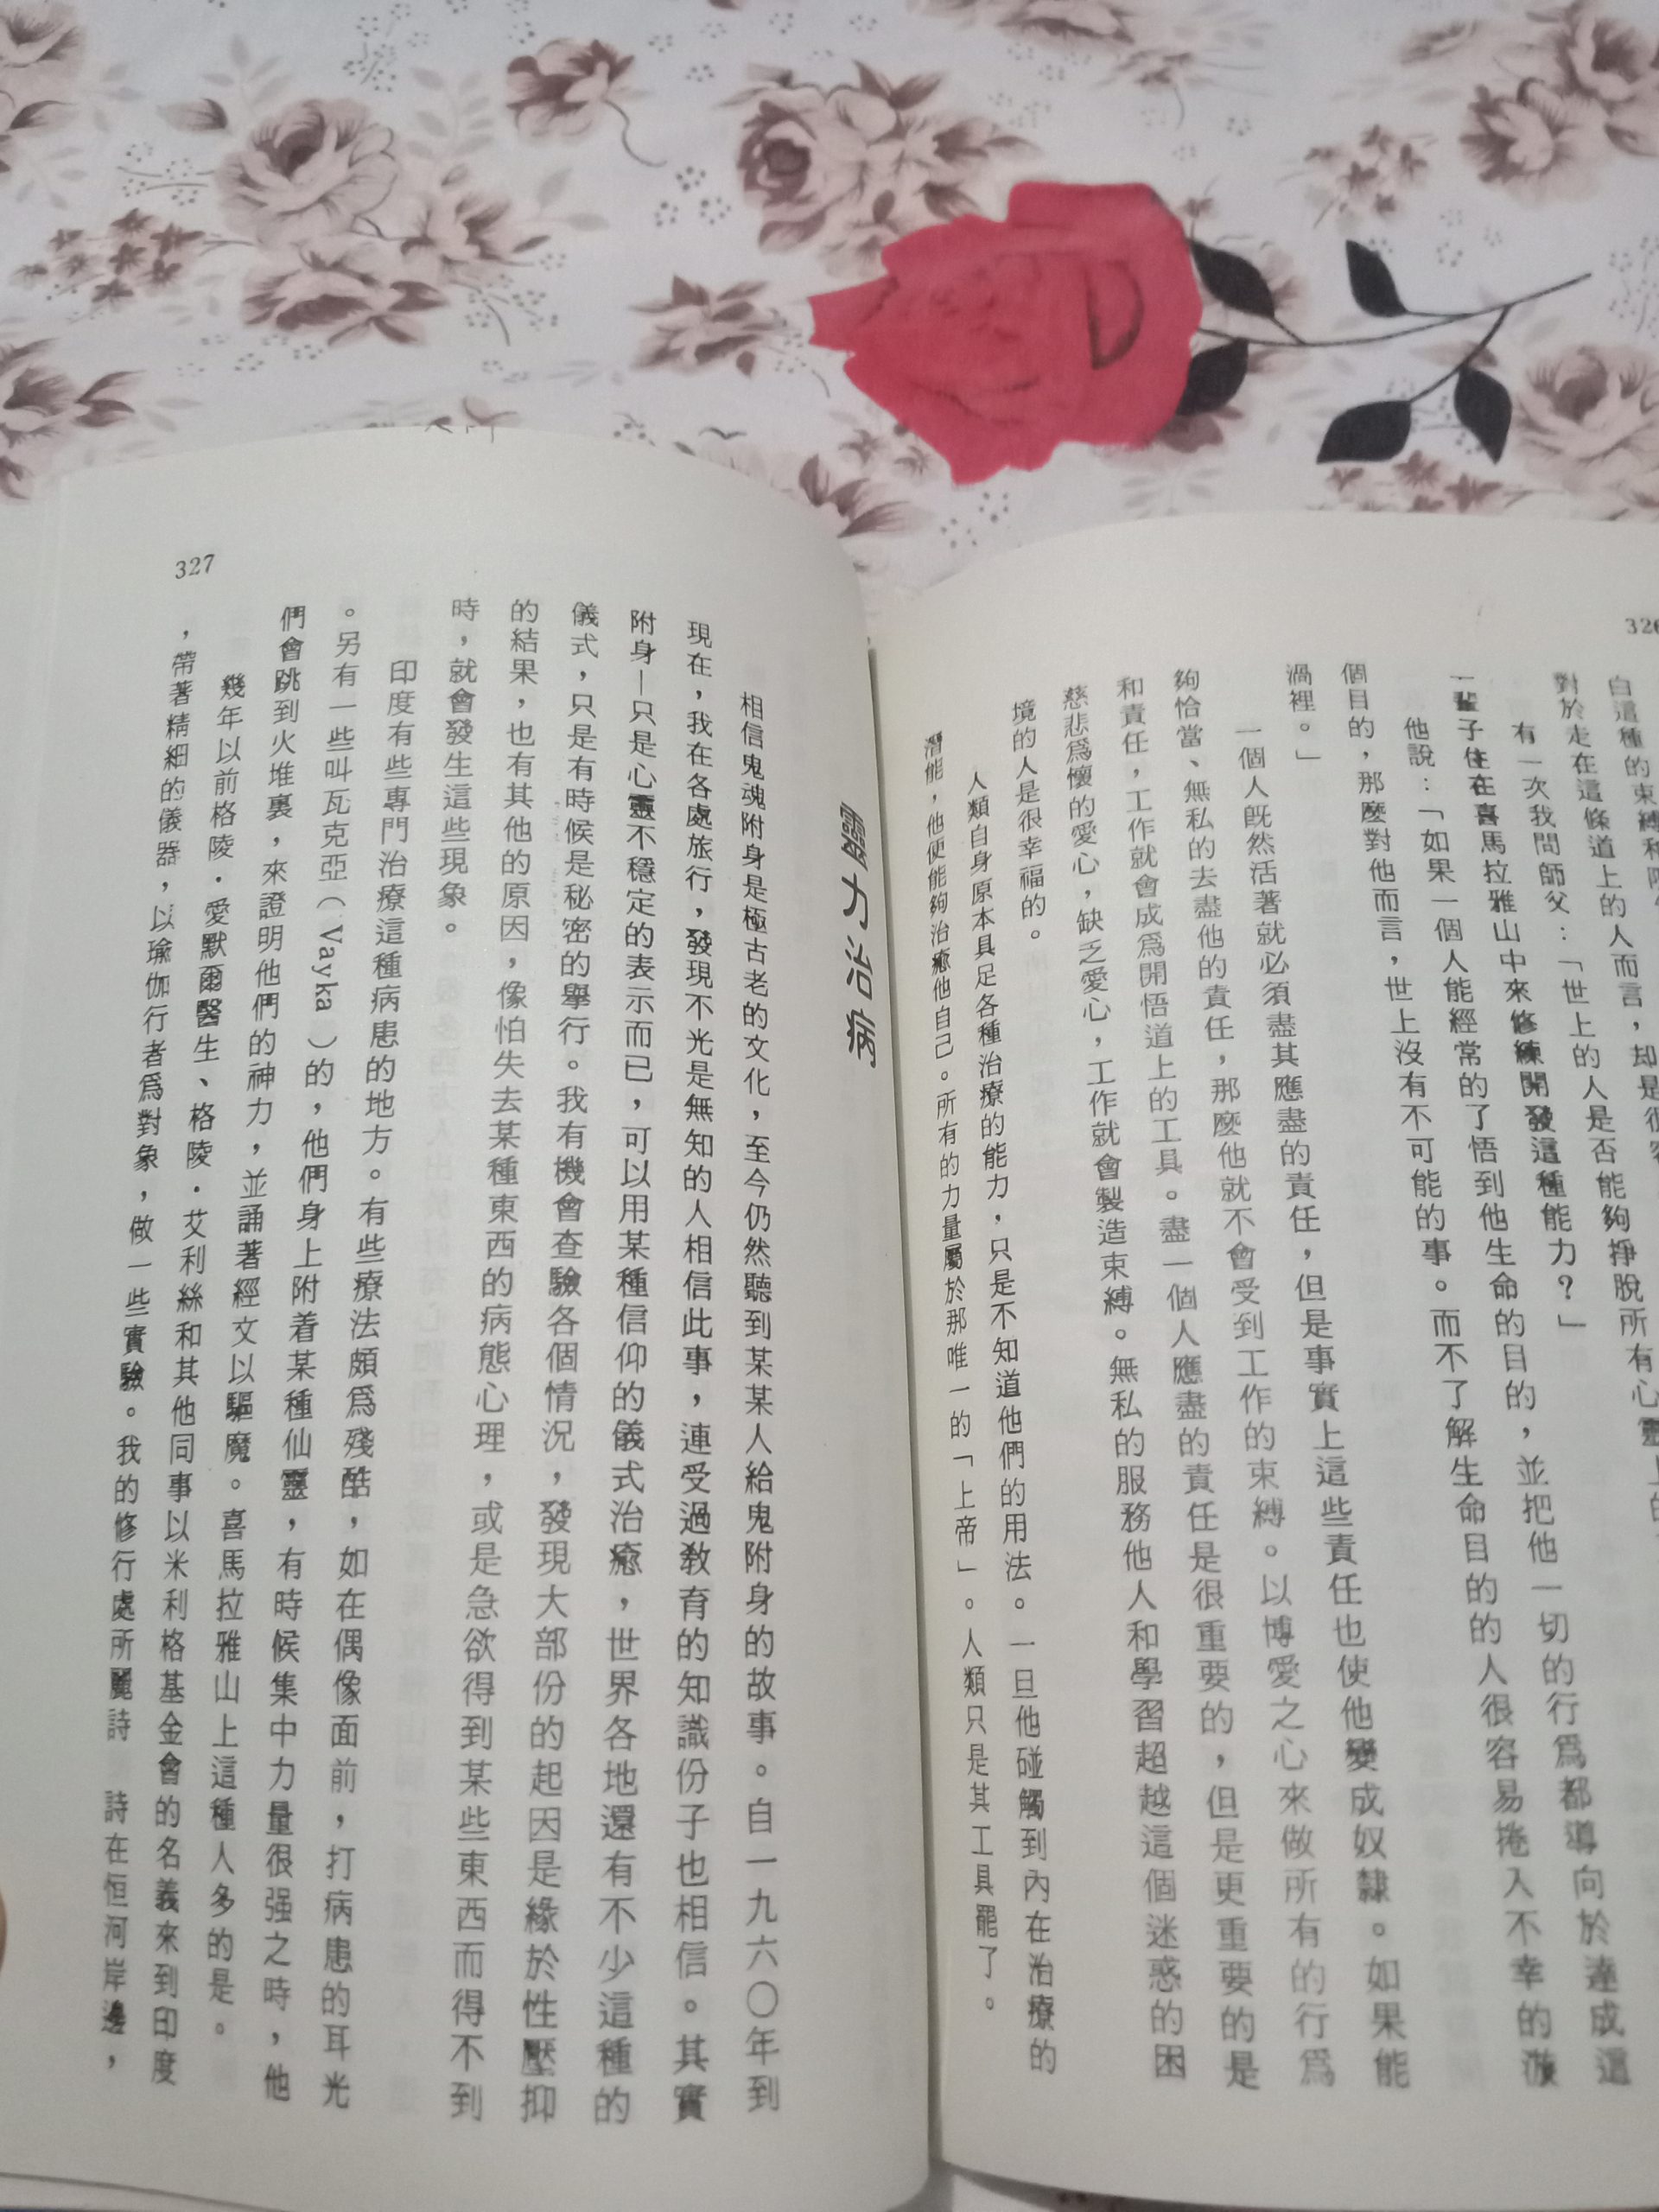 326
自這種的束縛和障
對於走在這條道上的人而言，却是很容
有一次我問師父：「世上的人是否能夠掙脫所有心靈上的
一輩子住在喜馬拉雅山中來修練開發這種能力？」
他說：「如果一個人能經常的了悟到他生命的目的，並把他一切的行爲都導向於達成這
個目的，那麼對他而言，世上沒有不可能的事。而不了解生命目的的人很容易捲入不幸的漩
渦裡。」
一個人既然活著就必須盡其應盡的責任，但是事實上這些責任也使他變成奴隸。如果能
夠恰當、無私的去盡他的責任，那麼他就不會受到工作的束縛。以博愛之心來做所有的行爲
和責任，工作就會成爲開悟道上的工具。盡一個人應盡的責任是很重要的，但是更重要的是
慈悲爲懷的愛心，缺乏愛心，工作就會製造束縛。無私的服務他人和學習超越這個迷惑的困
境的人是很幸福的。
人類自身原本具足各種治療的能力，只是不知道他們的用法。一旦他碰觸到內在治療的
潛能，他便能夠治癒他自己。所有的力量屬於那唯一的「上帝」。人類只是其工具罷了。
靈力治病
相信鬼魂附身是極古老的文化，至今仍然聽到某某人給鬼附身的故事。自一九六〇年到
現在，我在各處旅行，發現不光是無知的人相信此事，連受過教育的知識份子也相信。其實
附身—只是心靈不穩定的表示而已，可以用某種信仰的儀式治癒，世界各地還有不少這種的
儀式，只是有時候是秘密的舉行。我有機會查驗各個情況，發現大部份的起因是緣於性壓抑
的結果，也有其他的原因，像怕失去某種東西的病態心理，或是急欲得到某些東西而得不到
時，就會發生這些現象。
印度有些專門治療這種病患的地方。有些療法頗爲殘酷，如在偶像面前，打病患的耳光
。另有一些叫瓦克亞（Vayka）的，他們身上附着某種仙靈，有時候集中力量很强之時，他
們會跳到火堆裏，來證明他們的神力，並誦著經文以驅魔。喜馬拉雅山上這種人多的是。
幾年以前格陵·愛默爾醫生、格陵·艾利絲和其他同事以米利格基金會的名義來到印度
，帶著精細的儀器，以瑜伽行者爲對象，做一些實驗。我的修行處所麗詩 詩在恒河岸邊，
327